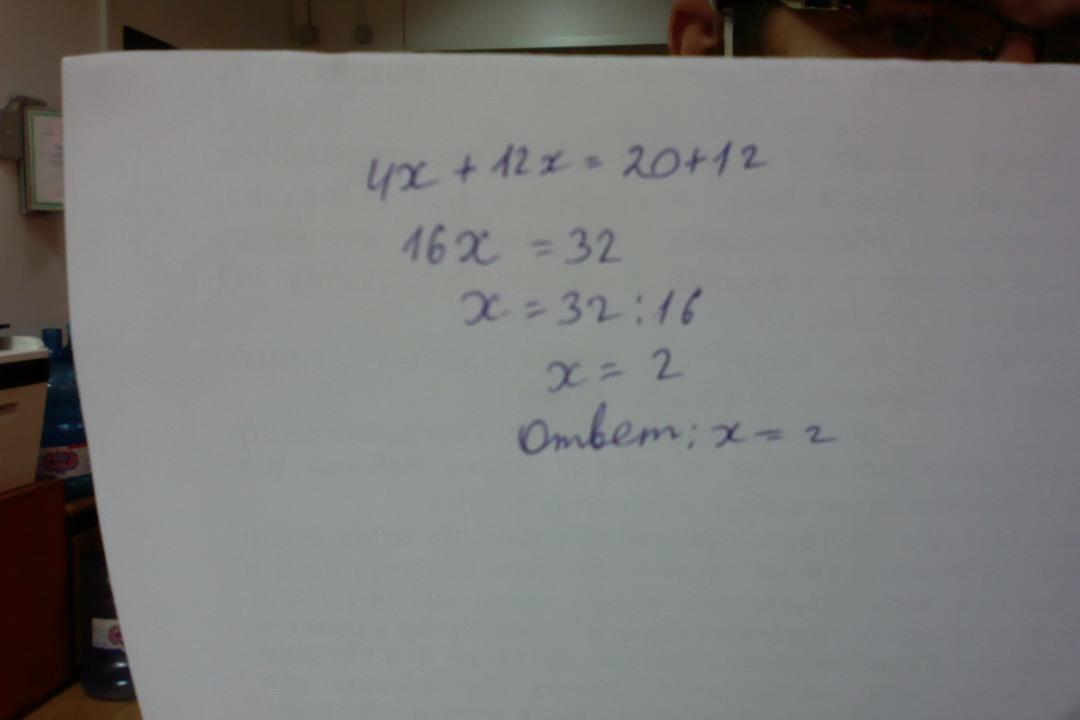 4x + 12x = 20+12
16x = 32
x = 32 : 16
x = 2
Ответ: x = 2